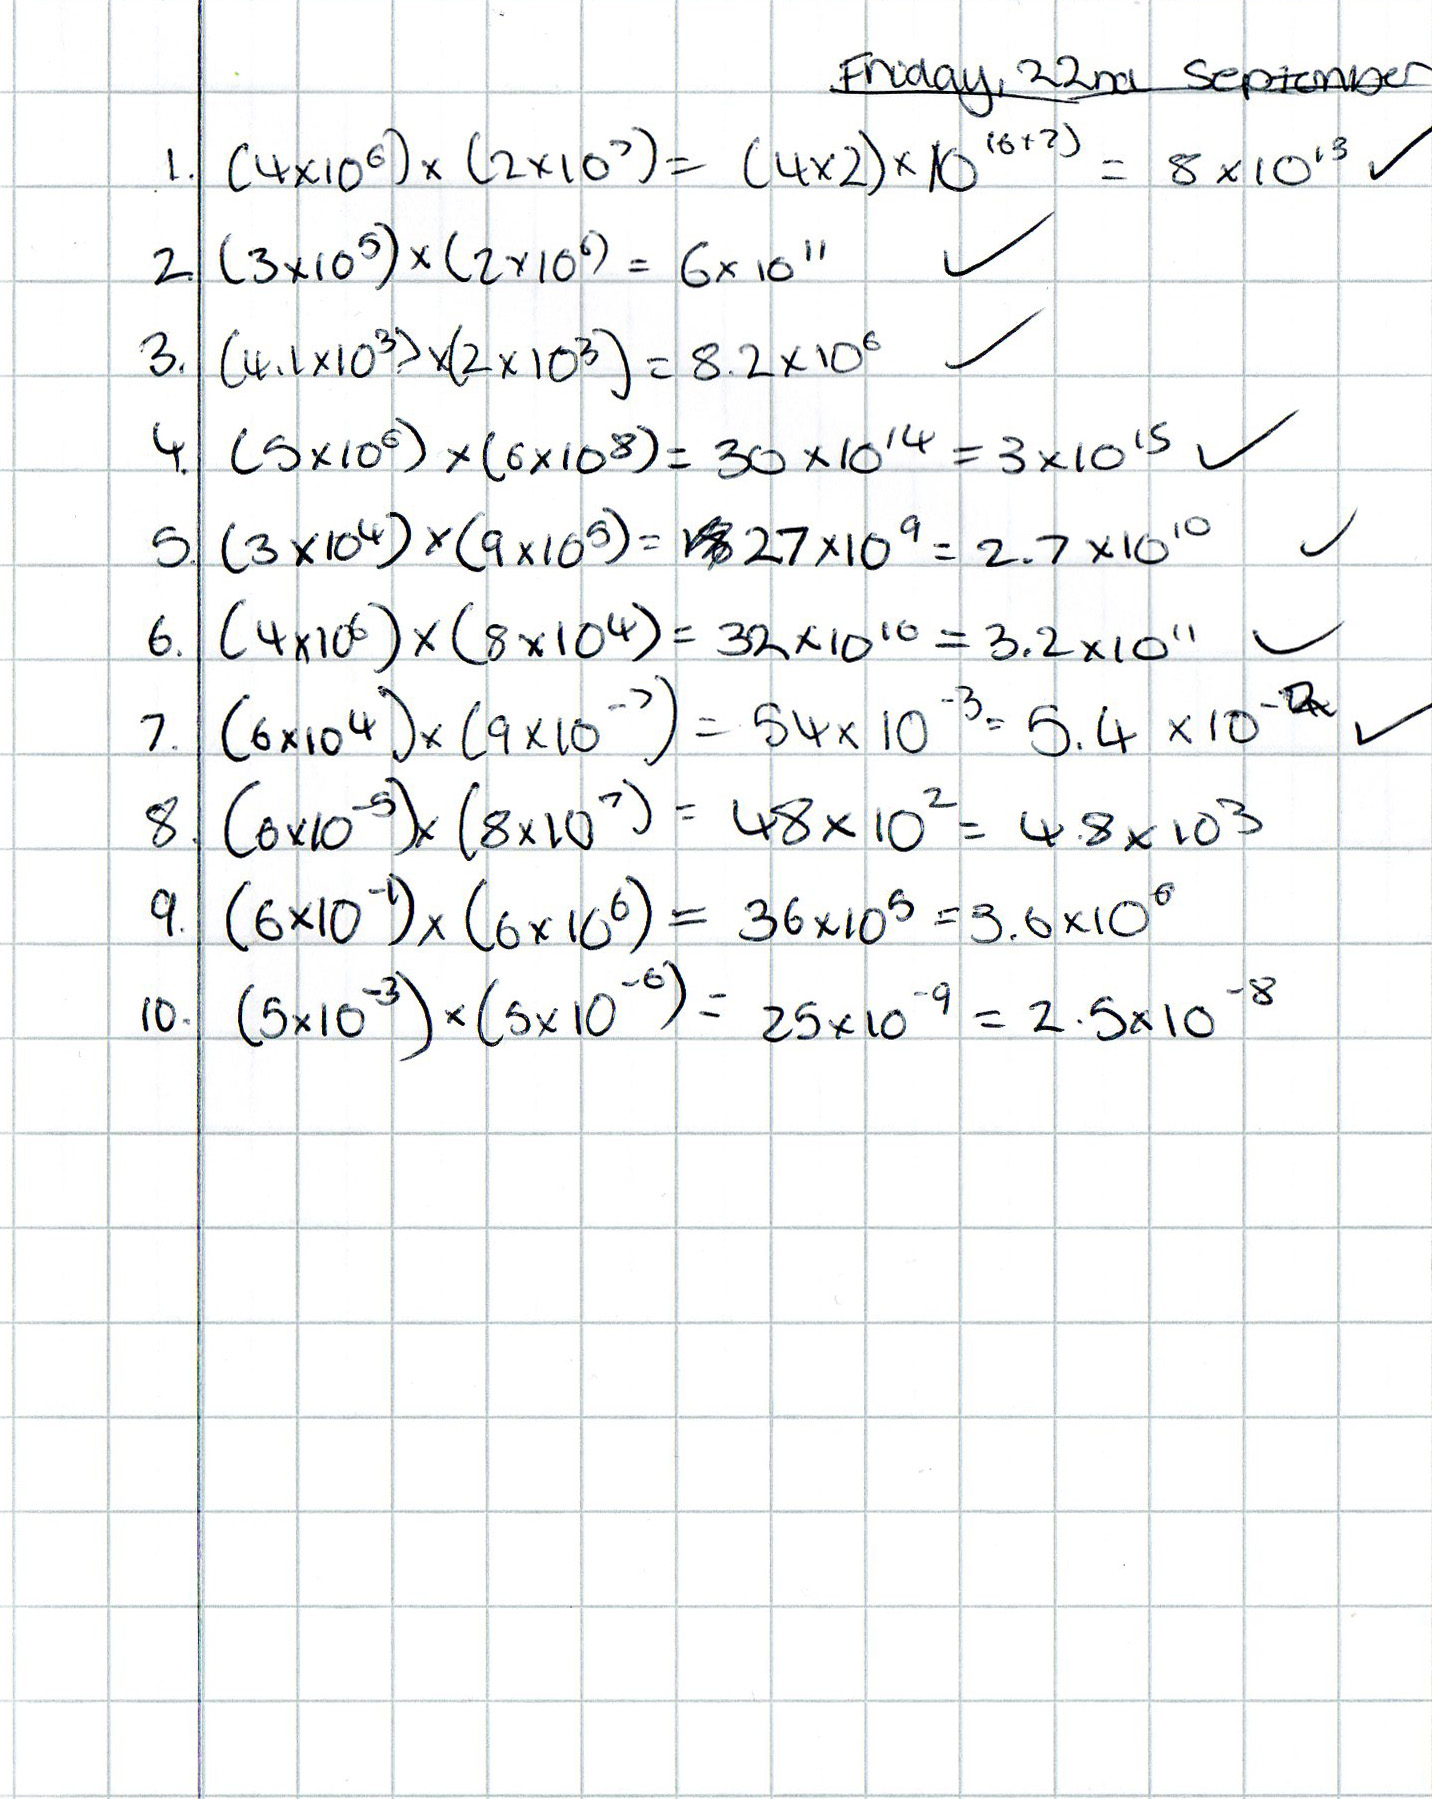 Friday, 22nd September
1. (4×10⁶)×(2×10⁷)= (4×2)×10⁽⁶⁺⁷⁾ = 8×10¹³ ✓
2. (3×10⁵)×(2×10⁶) = 6×10¹¹ ✓
3. (4.1×10³)×(2×10³)=8.2×10⁶ ✓
4. (5×10⁶)×(6×10⁸)= 30×10¹⁴ = 3×10¹⁵ ✓
5. (3×10⁴)×(9×10⁵)= 27×10⁹ = 2.7×10¹⁰ ✓
6. (4×10⁶)×(8×10⁴)= 32×10¹⁰ = 3.2×10¹¹ ✓
7. (6×10⁴)×(9×10⁻⁷) = 54×10⁻³ = 5.4×10⁻² ✓
8. (6×10⁻⁵)×(8×10⁷) = 48×10² = 4.8×10³
9. (6×10⁻¹)×(6×10⁶) = 36×10⁵ = 3.6×10⁶
10. (5×10⁻³)×(5×10⁻⁶) = 25×10⁻⁹ = 2.5×10⁻⁸